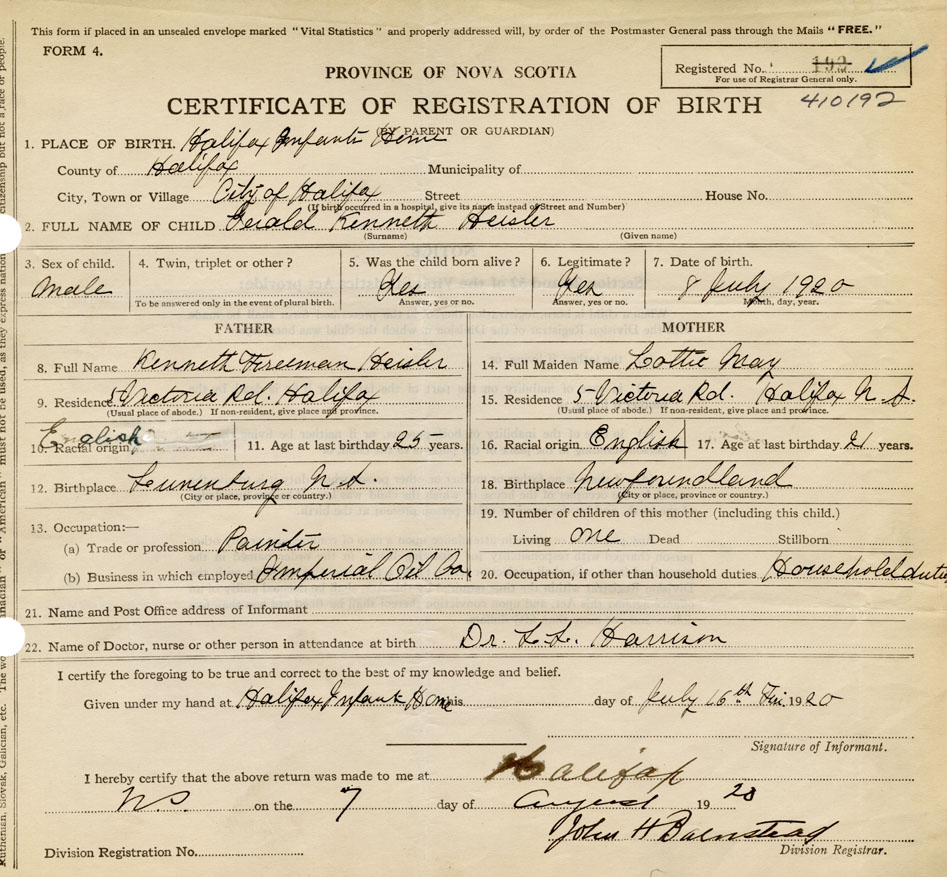 This form if placed in an unsealed envelope marked "Vital Statistics" and properly addressed will, by order of the Postmaster General pass through the Mails "FREE."
FORM 4.
Registered No. 192
For use of Registrar General only.
PROVINCE OF NOVA SCOTIA
CERTIFICATE OF REGISTRATION OF BIRTH 410192
(BY PARENT OR GUARDIAN)
1. PLACE OF BIRTH. Halifax Infants Home
County of Halifax Municipality of
City, Town or Village City of Halifax Street House No.
(If birth occurred in a hospital, give its name instead of Street and Number)
2. FULL NAME OF CHILD Gerald Kenneth Heisler
(Surname) (Given name)
3. Sex of child. 4. Twin, triplet or other? 5. Was the child born alive? 6. Legitimate? 7. Date of birth.
Male Yes Yes 8 July 1920
To be answered only in the event of plural birth. Answer, yes or no. Answer, yes or no. Month, day, year.
FATHER MOTHER
8. Full Name Kenneth Freeman Heisler 14. Full Maiden Name Lottie May
9. Residence 5 Victoria Rd. Halifax 15. Residence 5 Victoria Rd. Halifax N.S.
(Usual place of abode.) If non-resident, give place and province. (Usual place of abode.) If non-resident, give place and province.
10. Racial origin English 11. Age at last birthday 25 years. 16. Racial origin English 17. Age at last birthday 21 years.
12. Birthplace Lunenburg N.S. 18. Birthplace Newfoundland
(City or place, province or country.) (City or place, province or country.)
19. Number of children of this mother (including this child.)
13. Occupation:—
(a) Trade or profession Painter Living one Dead Stillborn
(b) Business in which employed Imperial Oil Co. 20. Occupation, if other than household duties Household duties
21. Name and Post Office address of Informant
22. Name of Doctor, nurse or other person in attendance at birth Dr. Harrison
I certify the foregoing to be true and correct to the best of my knowledge and belief.
Given under my hand at Halifax Infants Home this day of July 16th 1920
Signature of Informant.
I hereby certify that the above return was made to me at Halifax
N.S. on the 7 day of August 19 20
John H Barnstead
Division Registration No. Division Registrar.